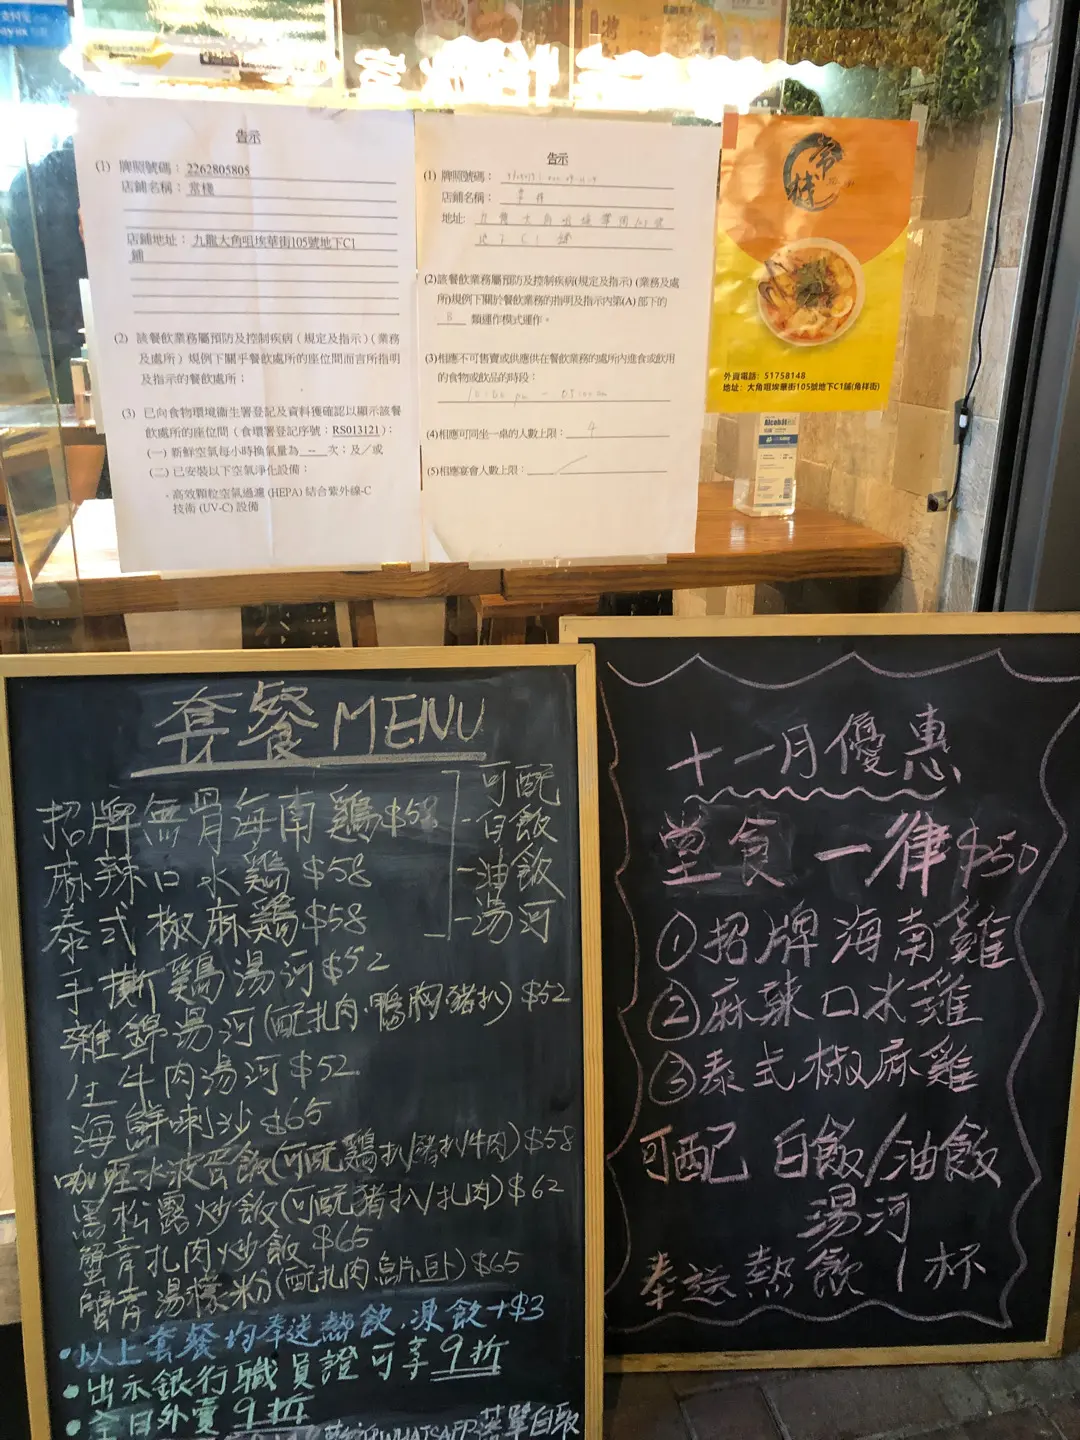 告示
(1) 牌照號碼：2262805805
店鋪名稱：常棧
店鋪地址：九龍大角咀埃華街105號地下C1
鋪
(2) 該餐飲業務屬預防及控制疾病(規定及指示)(業務
及處所)規例下關乎餐飲處所的座位間而言所指明
及指示的餐飲處所；
(3) 已向食物環境衞生署登記及資料獲確認以顯示該餐
飲處所的座位間(食環署登記序號：RS013121)：
(一) 新鮮空氣每小時換氣量為 -- 次；及／或
(二) 已安裝以下空氣淨化設備：
- 高效顆粒空氣過濾 (HEPA) 結合紫外線-C
技術 (UV-C) 設備
告示
(1) 牌照號碼：
店鋪名稱：常棧
地址: 九龍大角咀埃華街105號
地下C1鋪
(2)該餐飲業務屬預防及控制疾病(規定及指示) (業務及處
所)規例下關於餐飲業務的指明及指示內第(A) 部下的
B 類運作模式運作。
(3)相應不可售賣或供應供在餐飲業務的處所內進食或飲用
的食物或飲品的時段：
(4)相應可同坐一桌的人數上限： 4
(5)相應宴會人數上限：
常棧
外賣電話：51758148
地址：大角咀埃華街105號地下C1舖(角祥街)
Alcohol
套餐MENU
招牌無骨海南鷄$58
麻辣口水鷄$58
泰式椒麻鷄$58
可配
-白飯
-油飯
-湯河
手撕鷄湯河$52
雜錦湯河(配扎肉,鴨胸,豬扒)$52
生牛肉湯河$52
海鮮喇沙$65
咖喱水波蛋飯(可配鷄扒/豬扒/牛肉)$58
黑松露炒飯(可配豬扒/扎肉)$62
蟹膏扎肉炒飯$65
蟹膏湯檬粉(配扎肉,鳥戝卧)$65
•以上套餐均奉送熱飲,凍飲+$3
•出示銀行職員證可享9折
•全日外賣9折
WHATSAPP落單自取
十一月優惠
堂食一律$50
①招牌海南雞
②麻辣口水雞
③泰式椒麻雞
可配 白飯/油飯
湯河
奉送熱飲1杯